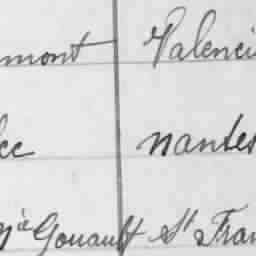 mont Valenci
cc nantes
Gouault St Fran